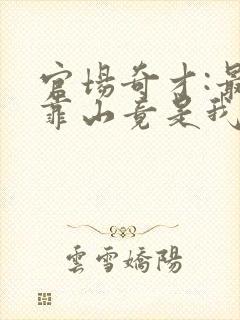 官場奇才:最
靠山竟是我
雲雪嬌陽